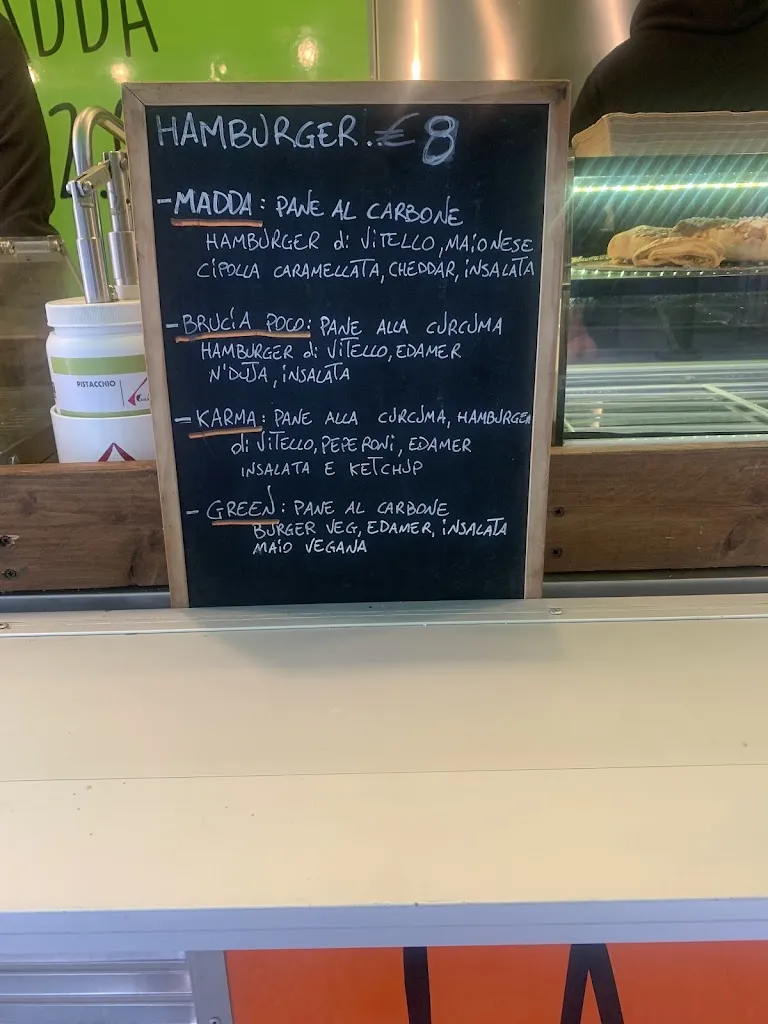 ADDA
HAMBURGER..€ 8
- MADDA: PANE AL CARBONE
HAMBURGER di ViTELLO, MAiONESE
CiPOLLA CARAMELLATA, CHEDDAR, iNSALATA
- BRUCiA POCO: PANE ALLA CURCUMA
HAMBURGER di ViTELLO, EDAMER
N'DUJA, iNSALATA
- KARMA: PANE ALLA CURCUMA, HAMBURGER
di ViTELLO, PEPERONi, EDAMER
iNSALATA E KETCHUP
- GREEN: PANE AL CARBONE
BURGER VEG, EDAMER, iNSALATA
MAiO VEGANA
PISTACCHIO
LA